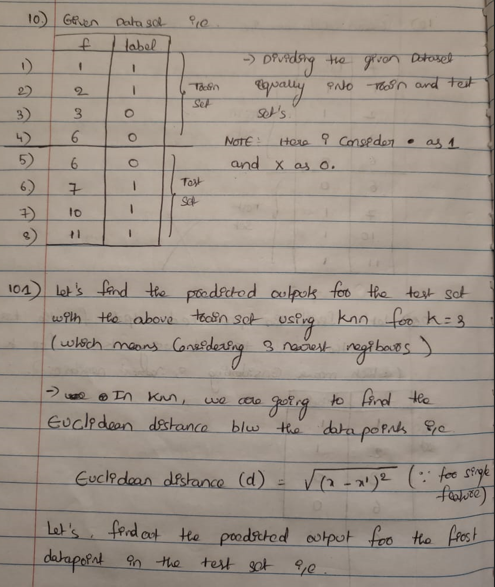 10) Given Dataset i,e
f label
1) 1 1
2) 2 1
3) 3 0
4) 6 0
5) 6 0
6) 7 1
7) 10 1
8) 11 1
Train
set
Test
set
→ Dividing the given Dataset
equally into train and test
set's.
NOTE: Here i Consider • as 1
and X as 0.
101) Let's find the predicted outputs for the test set
with the above train set using knn for k=3
(which means Considering 3 nearest negibours)
→ In knn, we are going to find the
Euclidean distance b/w the datapoints i,e
Euclidean distance (d) = √(x - x')² (∵ for single
feature)
Let's, findout the predicted output for the first
datapoint in the test set i,e.